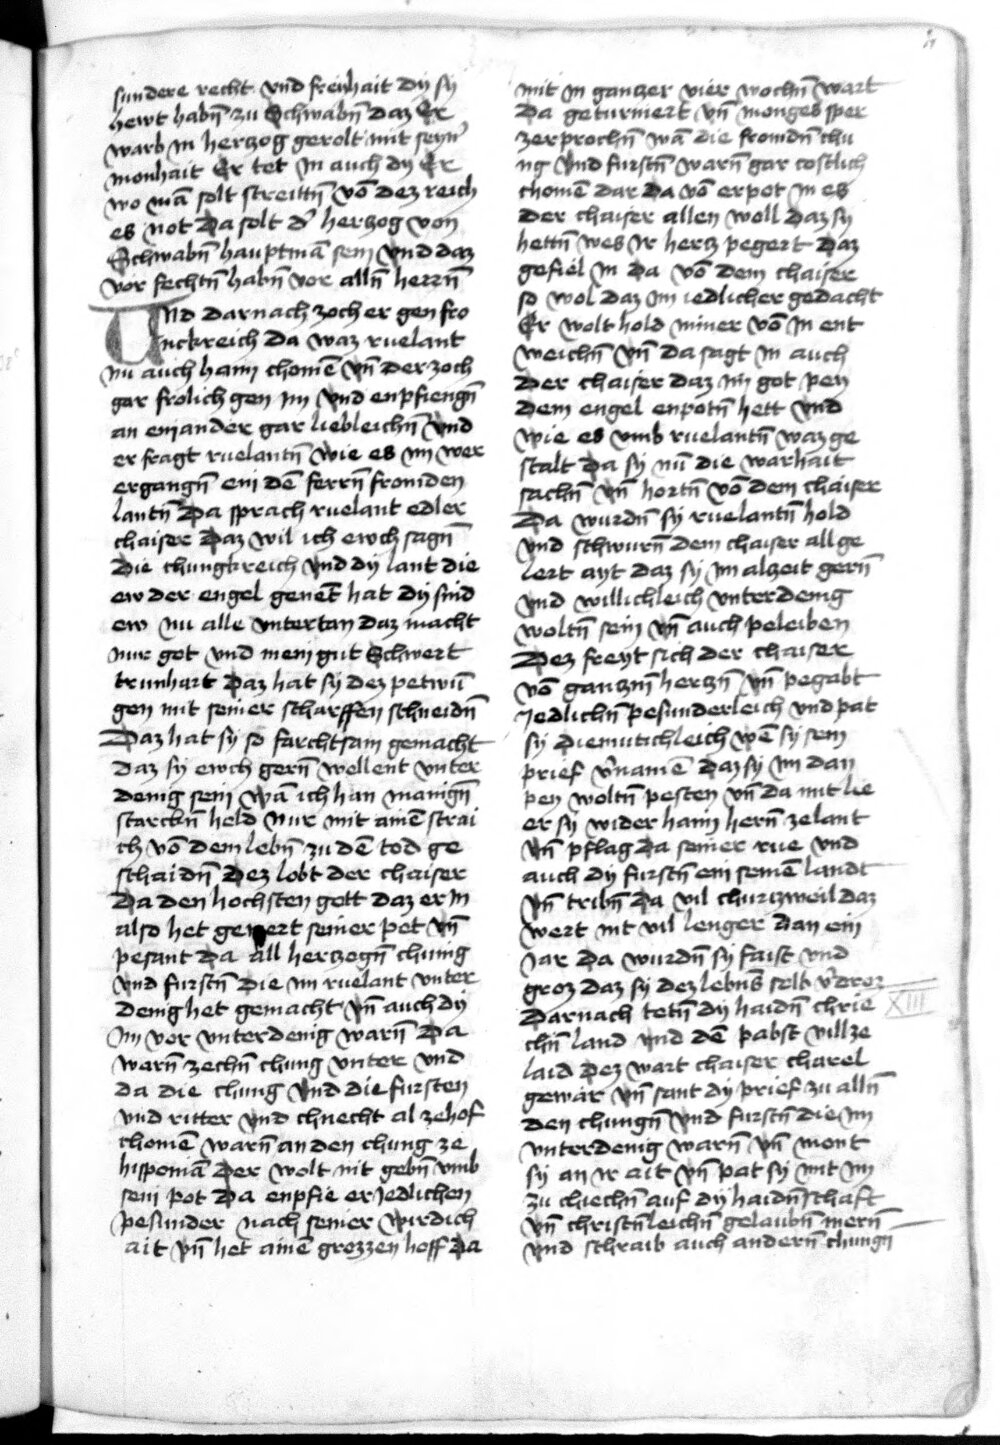 sundere recht vnd freyhait dy sy
hewt habñ zu Schwabñ daz Er
warb in hertzog gerolt mit seyn̄
monhait Er tet in auch dy Er
wo mā solt streittn̄ vō dez reich
es not Da solt d' hertzog von
Schwabñ hauptmā sein vnd daz
vor fechtn̄ habñ vor alln̄ herrn̄
Vnd darnach zoch er gen fro
nckreich da waz ruelant
nu auch haim chomē vn̄ der zoch
gar frolich gen im vnd enpfiengn̄
an einander gar liebleichn̄ vnd
er fragt ruelantn̄ wie es im wer
ergangn̄ ein dē ferrn̄ fromden
lantn̄ Da sprach ruelant edler
chaiser Daz wil ich ewch sagn̄
die chungkreich vnd dy lant die
ew der engel genēt hat dy sind
ew nu alle vntertan daz macht
nur got vnd mein gut Schwert
trunhart Daz hat sy dez petwū
gen mit seiner scharffen schneidn̄
Daz hat sy so farchtsam gemacht
daz sy ewch gern̄ wellent vnter
denig sein wā ich han manign̄
starckn̄ held nur mit ainē strai
ch vō dem lebn̄ zu dē tod ge
schaidn̄ Dez lobt der chaiser
Da den hochsten gott daz er in
also het gewert seiner pet vn̄
pesant da all hertzogn̄ chunig
vnd furstn̄ die im ruelant vnter
denig het gemacht vn̄ auch dy
im vor vnterdenig warn̄ Da
warn̄ zechn̄ chung vnter vnd
da die chung vnd die fursten
vnd ritter vnd chnecht al ze hof
chomē warn̄ an den chung ze
hispomā Der wolt nit gebn̄ vmb
sein pot Da enpfie er iedlichen
pesunder nach seiner wirdich
ait vn̄ het ainē grozzen hoff Da
mit in gantzer vier wochn̄ wart
Da geturniert vn̄ monges sper
zerprochn̄ wā die fromdn̄ chu
ng vnd furstn̄ warn̄ gar costlich
chomē dar Da vō erpot in es
der chaiser allen woll daz sy
hettn̄ wes ir hertz pegert Daz
gefiel in da vō dem chaiser
so wol daz im iedlicher gedacht
Er wolt hold nimer vō in ent
weichn̄ vn̄ da sagt in auch
Der chaiser daz im got pey
dem engel enpotn̄ hett vnd
wie es vmb ruelantn̄ waz ge
stalt Da sy nū die warhait
sachn̄ vn̄ hortn̄ vō dem chaiser
Da wurdn̄ sy ruelantn̄ hold
vnd schwurn̄ dem chaiser all ge
lert ayt daz sy im alzeit gern̄
vnd willichleich vnterdenig
woltn̄ sein vn̄ auch peleiben
Dez freyt sich der chaiser
vō gantzm̄ hertzn̄ vn̄ pegabt
iedlichn̄ pesunderleich vnd pat
sy diemutichleich wē sy sein
prief v'namē Daz sy im dan
pey woltn̄ pesten vn̄ da mit lie
er sy wider haim hern̄ ze lant
vn̄ pflag da seiner rue vnd
auch dy furstn̄ ein seinē landt
vn̄ tribn̄ Da vil churtzweil daz
wert nit vil lenger dan ein
iar Da wurdn̄ sy faist vnd
groz daz sy dez lebn̄s selb v'droz
Darnach tetn̄ dy haidn̄ chrie
chn̄ land vnd dē pabst vill ze
laid Dez wart chaiser charel
gewar vn̄ sant dy prief zu alln̄
den chungn̄ vnd furstn̄ die im
vnterdenig warn̄ vn̄ mont
sy an ir ait vn̄ pat sy mit im
zu chiechn̄ auf dy haidn̄schaft
vn̄ christn̄leichn̄ gelaubn̄ mern̄
vnd schraib auch andern̄ chungn
XIII